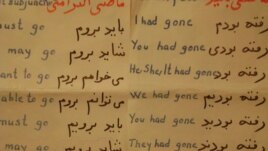 subjunc
ماضی التزامی
must go باید بروم
may go شاید بروم
want to go می خواهم بروم
able to go می توانم بروم
must go باید بروم
may go شاید بروم
I had gone رفته بودم
You had gone رفته بودی
He/She/It had gone رفته بود
We had gone رفته بودیم
You had gone رفته بودید
They had gone رفته بودند